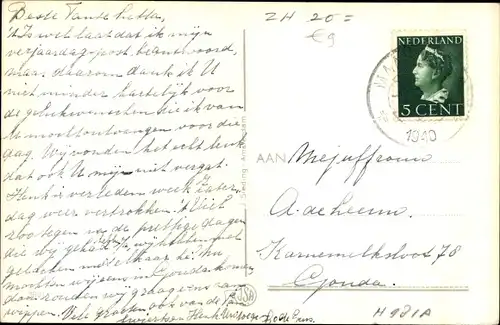 Beste Tante Letta,
't Is wel laat dat ik mijn
verjaardag-post beantwoord,
maar daarom dank ik U
niet minder hartelijk voor
de gelukwenschen die ik van
U mocht ontvangen voor die
dag. Wij vonden het echt leuk
dat ook U mijn niet vergat.
Henk is verleden week Zater-
dag weer vertrokken 't Viel
zoo tegen na de prettige dagen
die wij gehad
met elkaar
moesten wij eens in Gouda komen
dan zouden wij graag eens aan
wippen. Vele groeten ook van de
Henk
ZH 20=
€9
NEDERLAND
5 CENT
1940
AAN
Mejuffrouw
A. de
Karnemelksloot 78
Gouda.
H 931A
JSA